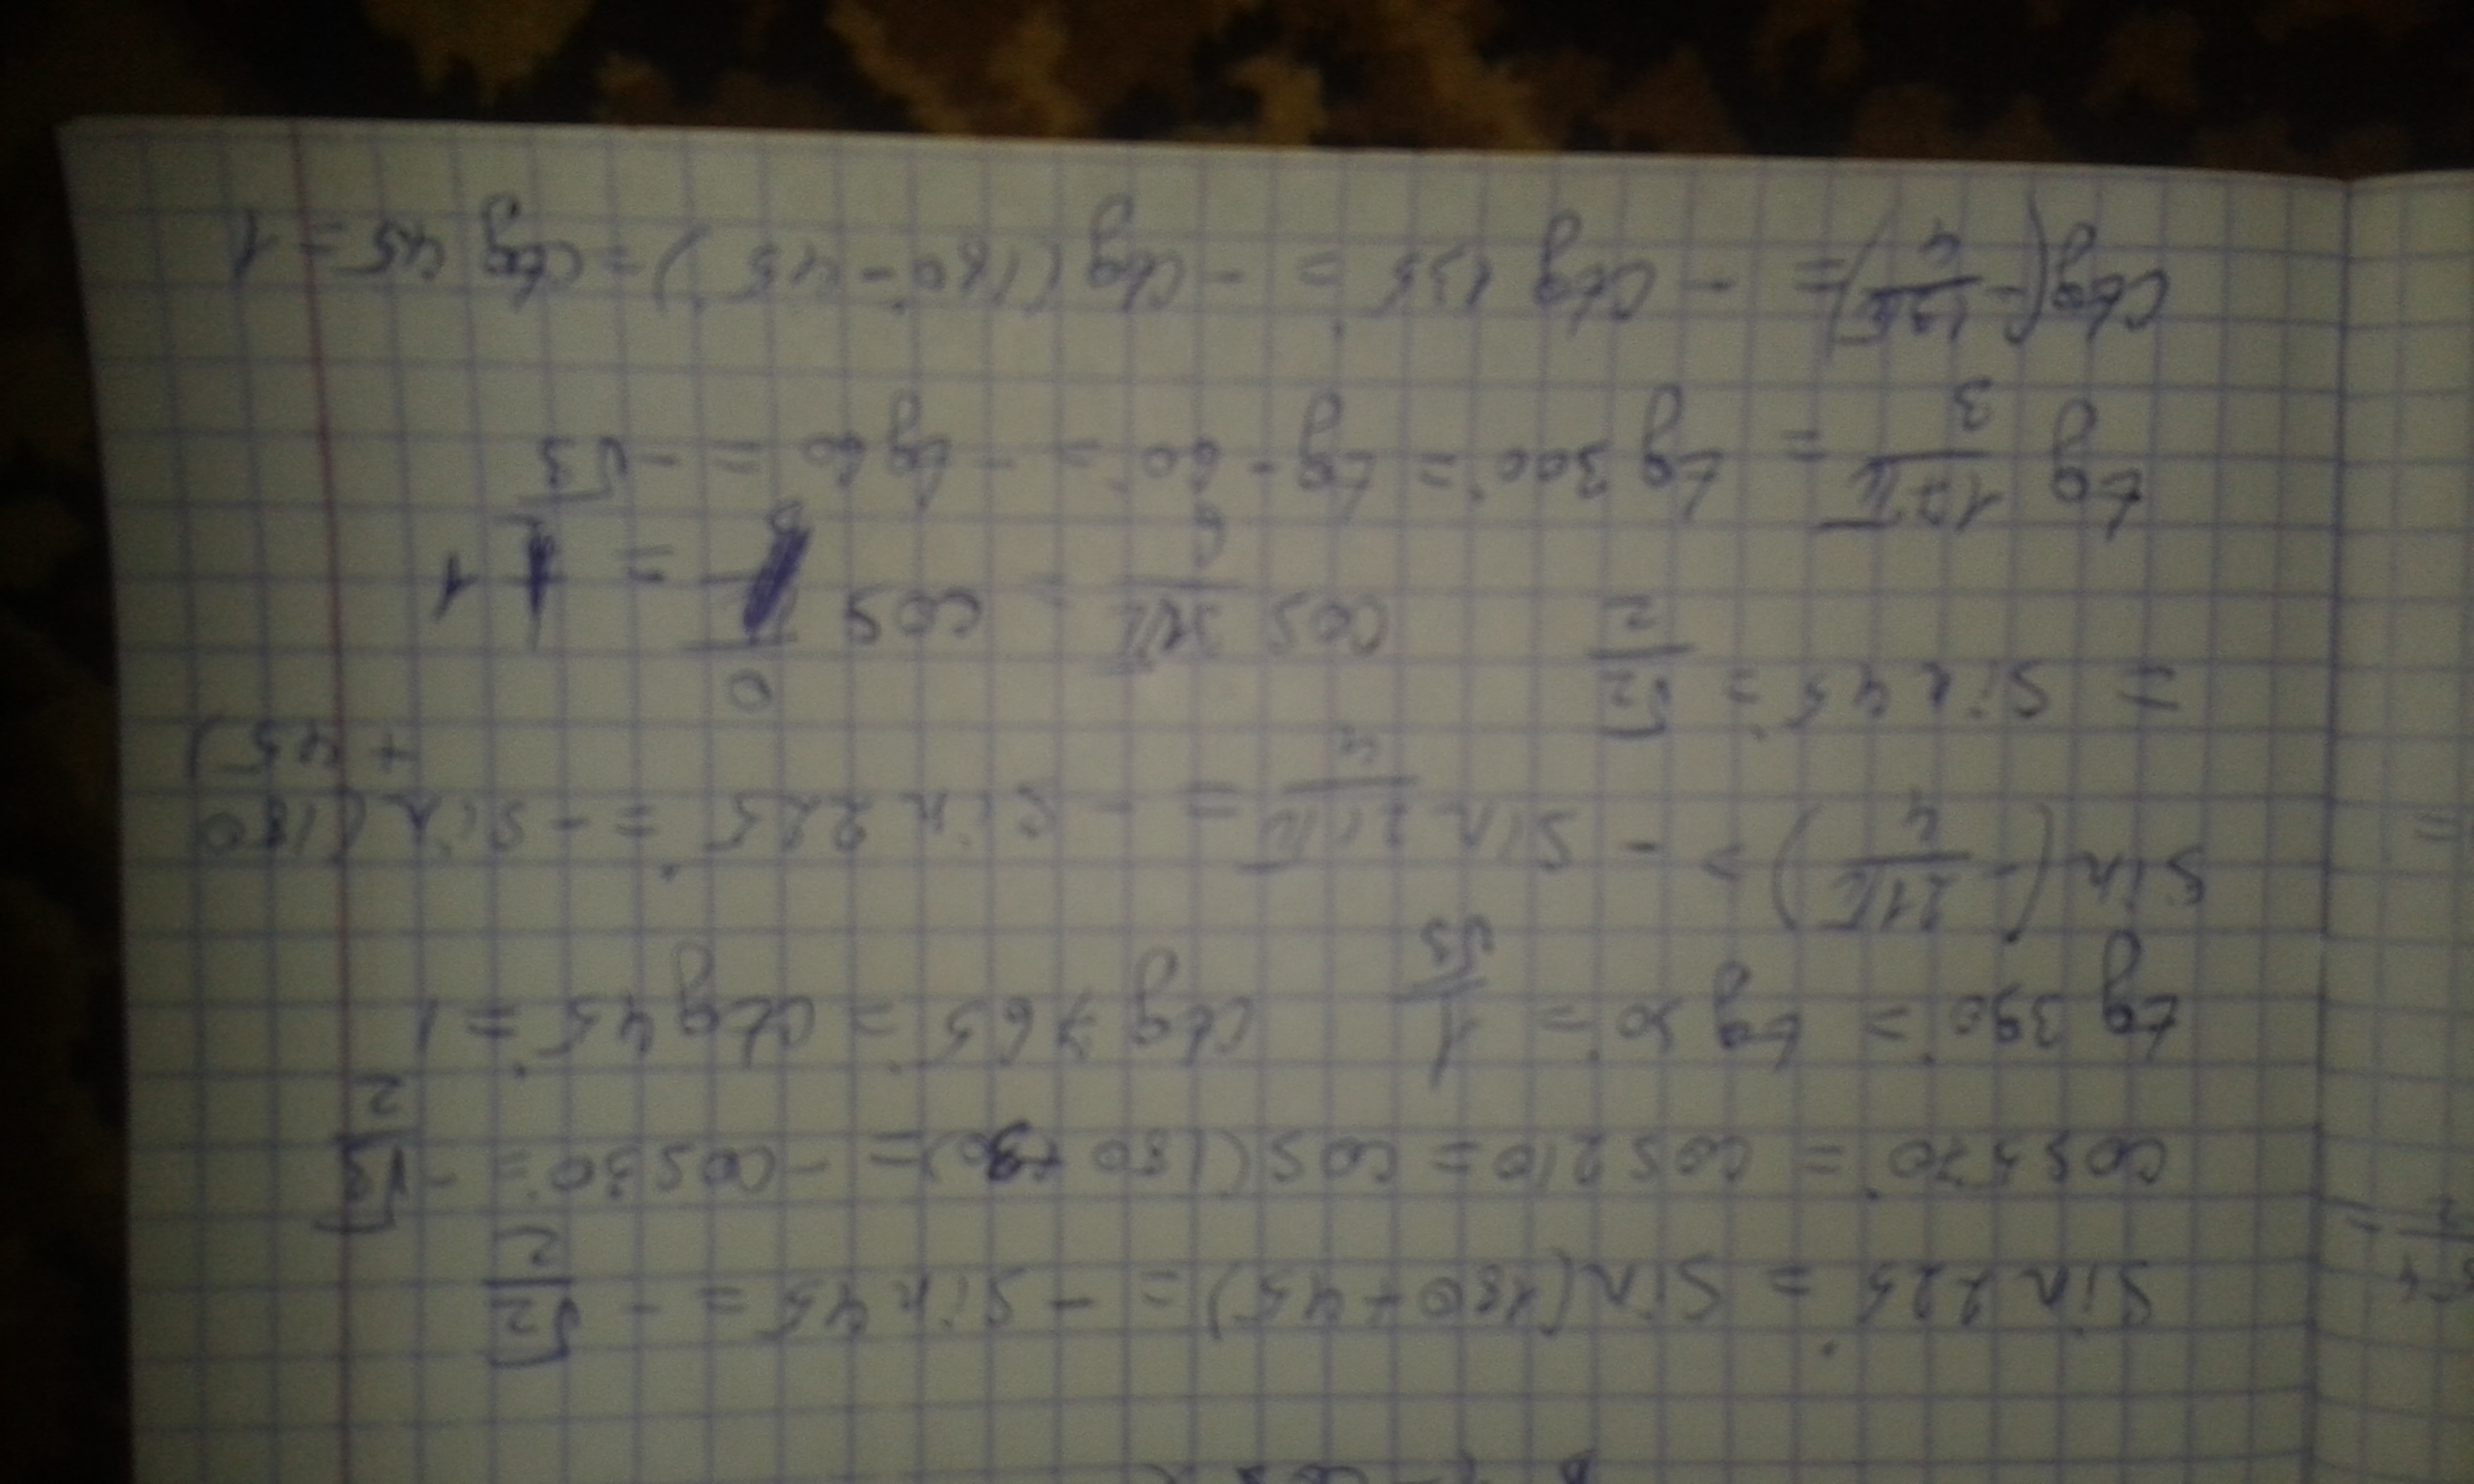 sin 225° = sin(180+45) = - sin 45 = - √2/2
cos 570° = cos 210 = cos (180+30) = - cos 30° = - √3/2
tg 390° = tg 30° = 1/√3 ctg 765° = ctg 45° = 1
sin (- 21π/4) = - sin 21π/4 = - sin 225° = - sin (180
+ 45)
= sin 45° = √2/2 cos /6 = cos 0 = 1
tg 17π/3 = tg 300° = tg - 60° = - tg 60 = - √3
ctg(- /4) = - ctg 135° = - ctg (180° - 45°) = ctg 45 = 1